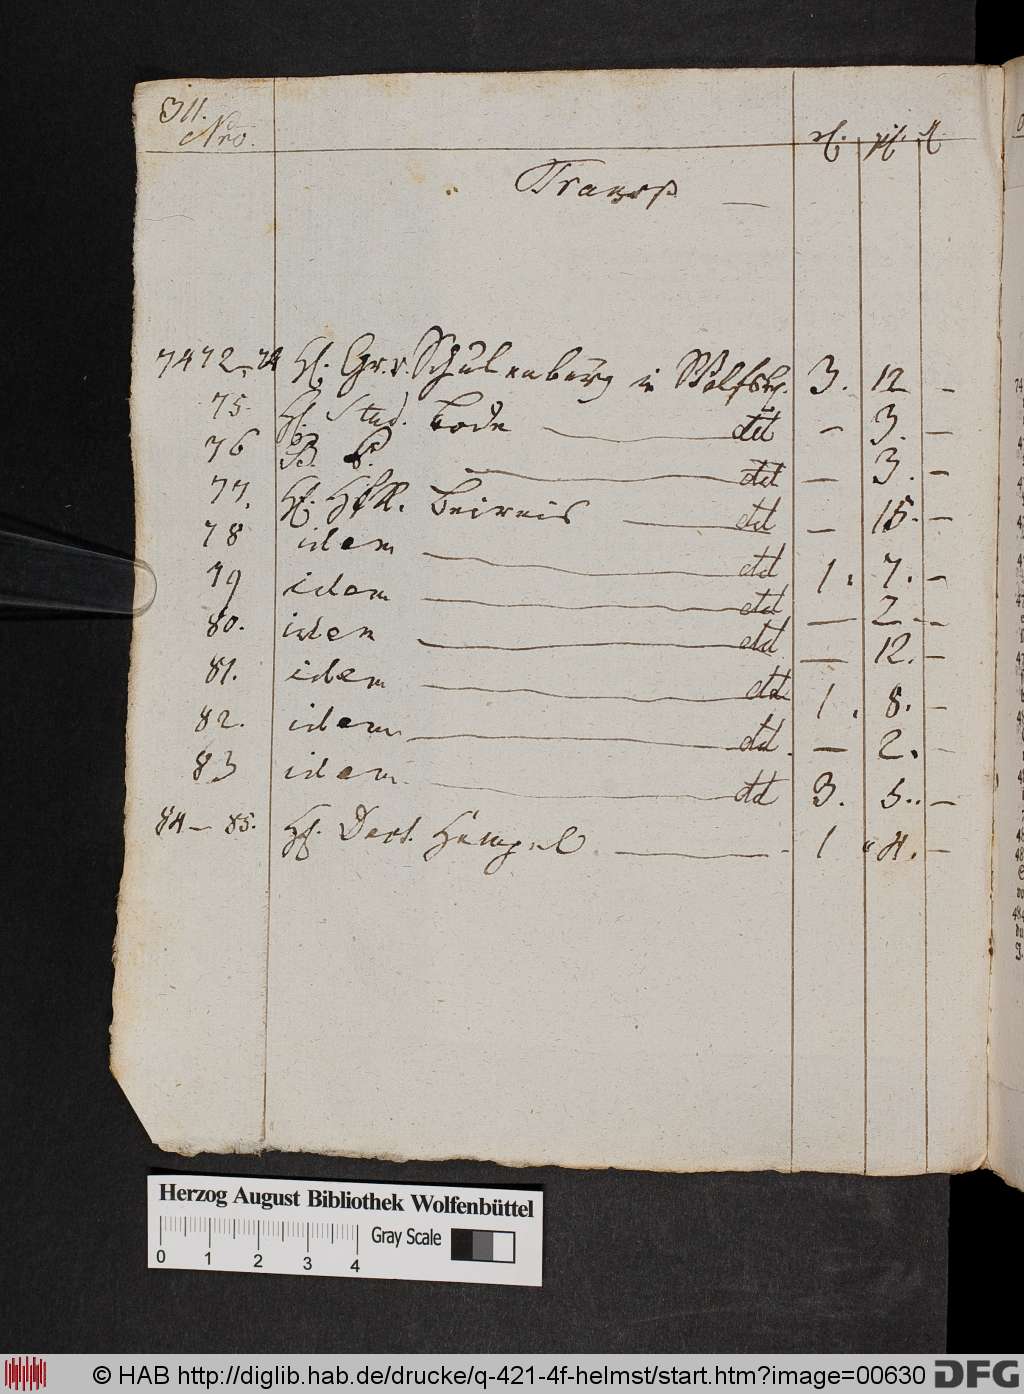 311.
Nro.
Transp
7472-74 H. Gr. v. Schulenburg in Wolfsb. 3. 12 -
75 H. Stud. Bode dd - 3. -
76 B. C. dd - 3. -
77. H. HfR. Beireis dd - 15. -
78 idem dd 1. 7. -
79 idem dd - 2. -
80. idem dd - 12. -
81. idem dd 1. 8. -
82. idem dd - 2. -
83 idem dd 3. 5. -
84-85. H. Doct. Hempel - 1 4. -
Herzog August Bibliothek Wolfenbüttel
Gray Scale
0 1 2 3 4
© HAB http://diglib.hab.de/drucke/q-421-4f-helmst/start.htm?image=00630 DFG